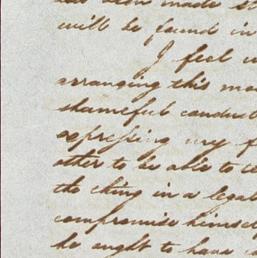 been made st
will be found in
I feel
arranging this ma
shameful conduct
expressing my f
other to be able to
the thing in a legal
compromise himself
he ought to have